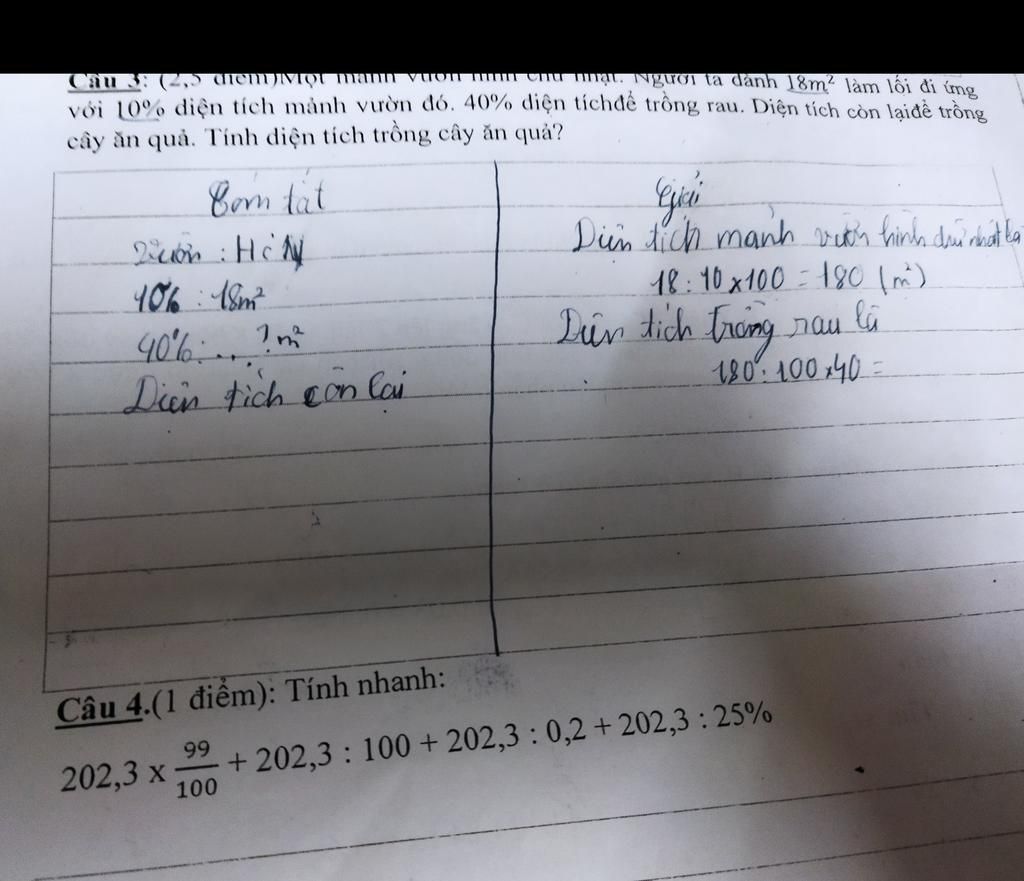 Câu 3: (2,5 điểm)Một mảnh vườn hình chữ nhật. Người ta dành 18m² làm lối đi ứng
với 10% diện tích mảnh vườn đó. 40% diện tíchđể trồng rau. Diện tích còn lạiđể trồng
cây ăn quả. Tính diện tích trồng cây ăn quả?
tắt
: HCN
10% : 18m²
40% : ...? m²
Diện tích còn lại
Giải
Diện tích mảnh vườn hình chữ nhật là
18 : 10 x 100 = 180 (m²)
Diện tích trồng rau là
180 : 100 x 40 =
Câu 4.(1 điểm): Tính nhanh:
202,3 x 99/100 + 202,3 : 100 + 202,3 : 0,2 + 202,3 : 25%